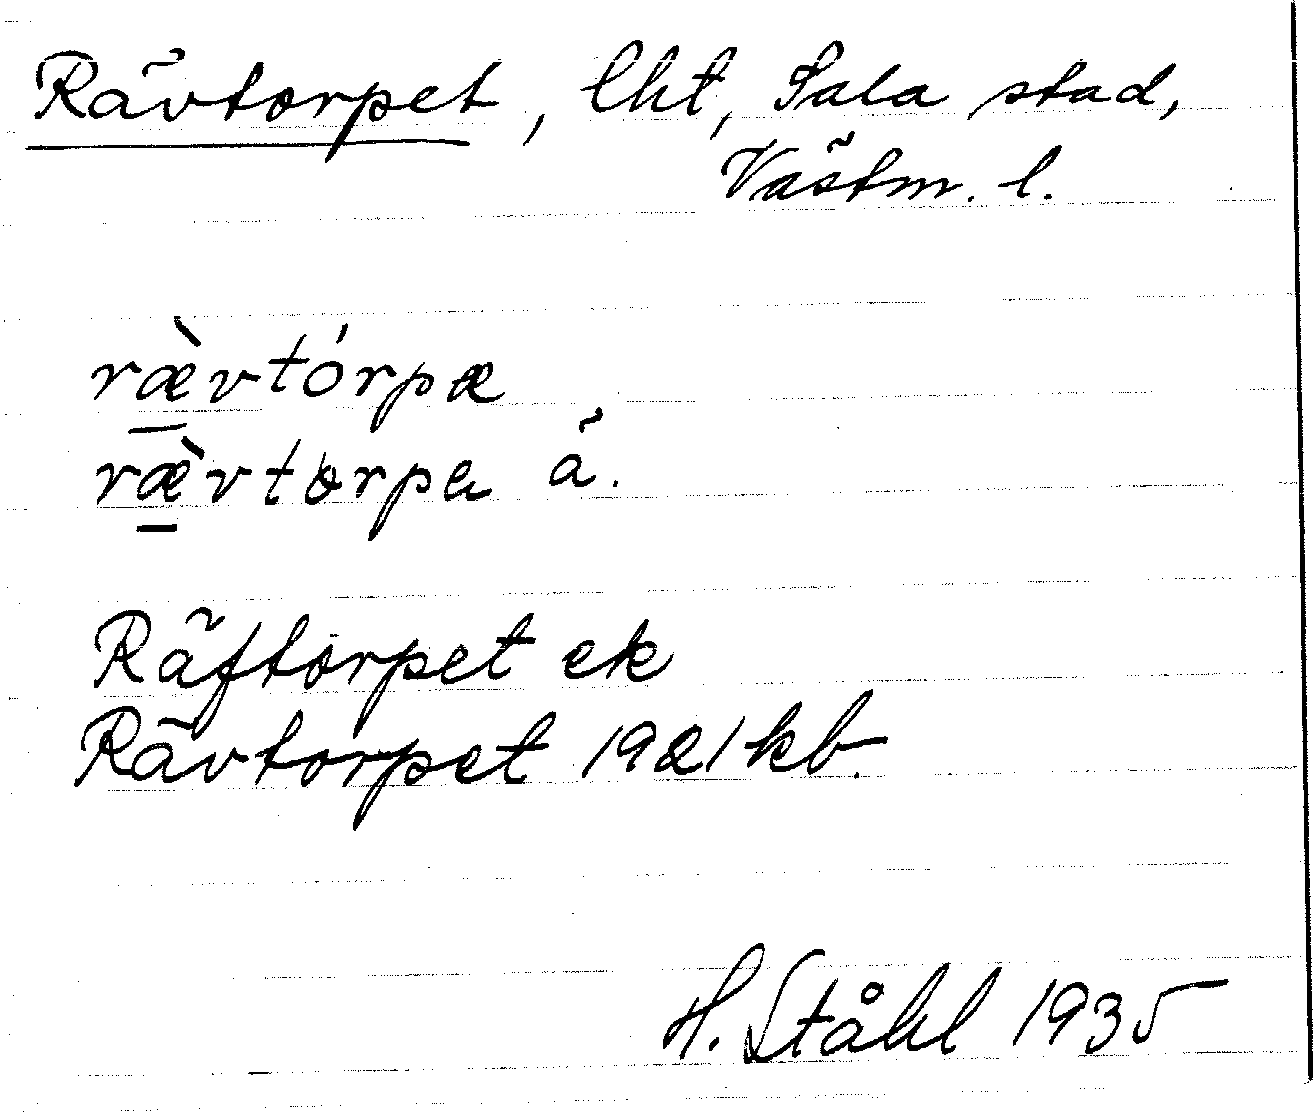 Rävtorpet, lht, Sala stad,
Västm. l.
ræ̀vtórpæ
ræ̀vtorpa ä.
Räftorpet ek
Rävtorpet 1921 kb.
H. Ståhl 1935